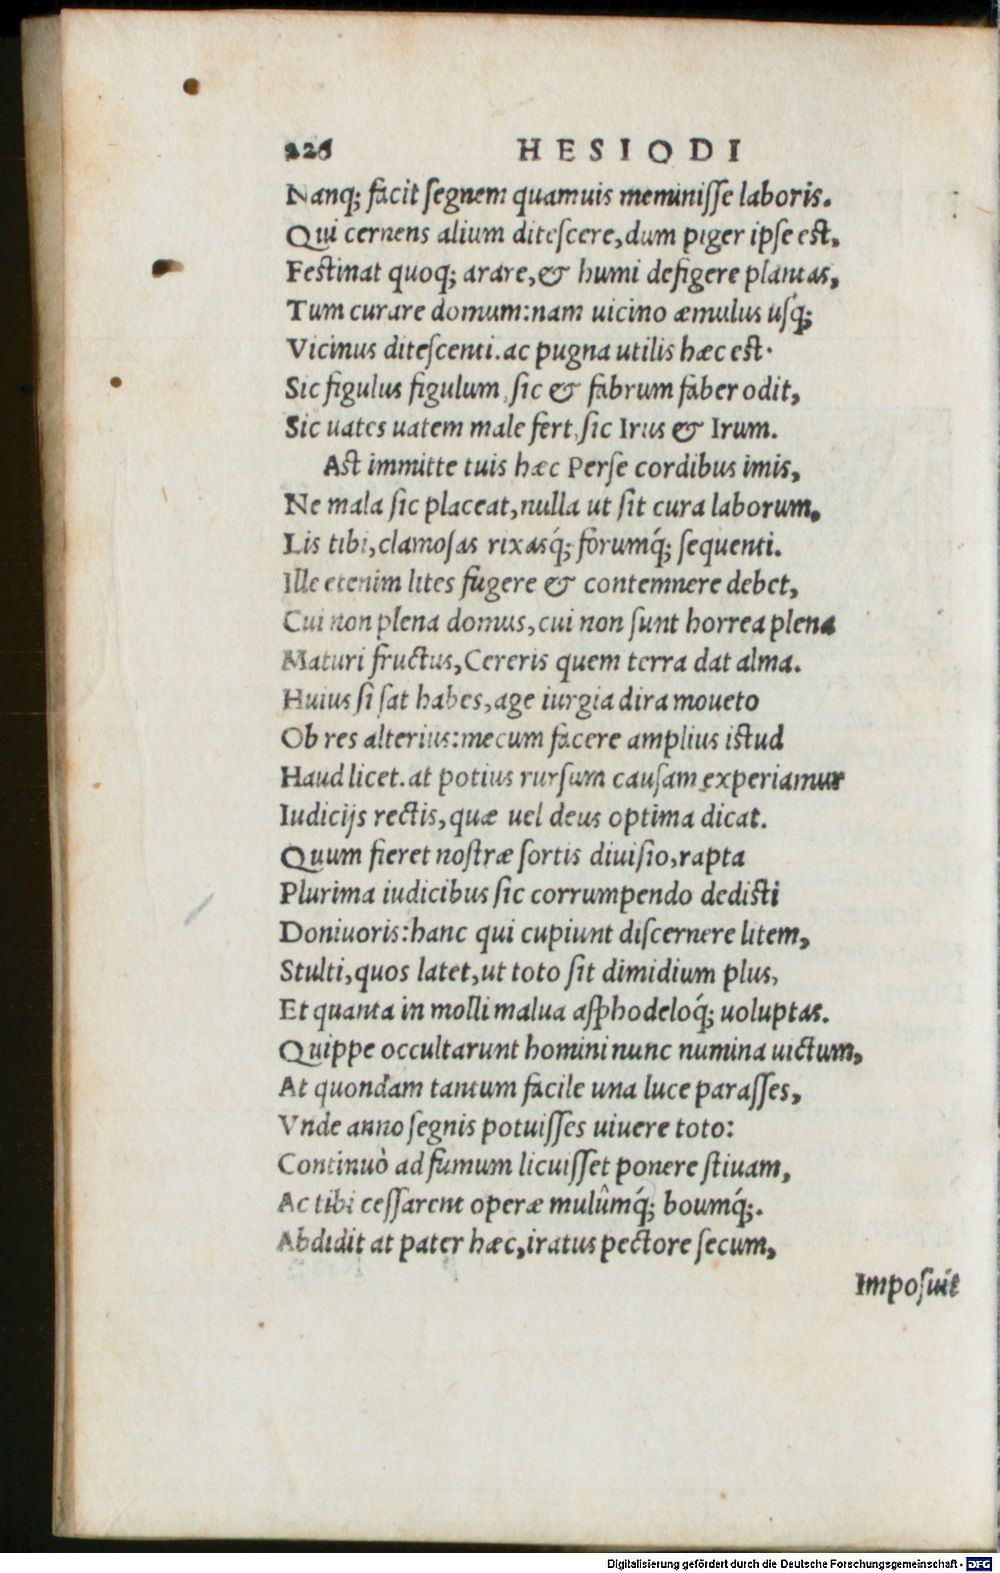 226 HESIODI
Nanq; facit segnem quamuis meminisse laboris.
Qui cernens alium ditescere, dum piger ipse est,
Festinat quoq; arare, & humi defigere plantas,
Tum curare domum: nam uicino æmulus usq́;
Vicinus ditescenti. ac pugna utilis hæc est.
Sic figulus figulum, sic & fabrum faber odit,
Sic uates uatem male fert, sic Irus & Irum.
Ast immitte tuis hæc Perse cordibus imis,
Ne mala sic placeat, nulla ut sit cura laborum,
Lis tibi, clamosas rixasq́; forumq́; sequenti.
Ille etenim lites fugere & contemnere debet,
Cui non plena domus, cui non sunt horrea plena
Maturi fructus, Cereris quem terra dat alma.
Huius si sat habes, age iurgia dira moueto
Ob res alterius: mecum facere amplius istud
Haud licet. at potius rursum causam experiamur
Iudicijs rectis, quæ uel deus optima dicat.
Quum fieret nostræ sortis diuisio, rapta
Plurima iudicibus sic corrumpendo dedisti
Doniuoris: hanc qui cupiunt discernere litem,
Stulti, quos latet, ut toto sit dimidium plus,
Et quanta in molli malua asphodeloq́; uoluptas.
Quippe occultarunt homini nunc numina uictum,
At quondam tantum facile una luce parasses,
Vnde anno segnis potuisses uiuere toto:
Continuò ad fumum licuisset ponere stiuam,
Ac tibi cessarent operæ mulûmq́; boumq́;.
Abdidit at pater hæc, iratus pectore secum,
Imposuit
Digitalisierung gefördert durch die Deutsche Forschungsgemeinschaft - DFG